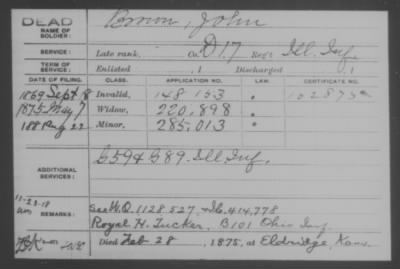 DEAD
NAME OF SOLDIER: Brown, John
SERVICE: Late rank, Co. D 17 Reg't Ill. Inf.
TERM OF SERVICE: Enlisted , 1 Discharged , 1
DATE OF FILING. CLASS. APPLICATION NO. LAW. CERTIFICATE NO.
1869 Sept 8 Invalid, 148 153
1875 May 7 Widow, 220,898
188 Aug 22 Minor, 285,013
ADDITIONAL SERVICES: G 59 & G 89. Ill Inf.
11-23-18
REMARKS: see W.O. 1128.527, 414,778
Royal H. Tucker. B 101 Ohio Inf.
Died Feb 28, 1875, at Eldridge, Kans.